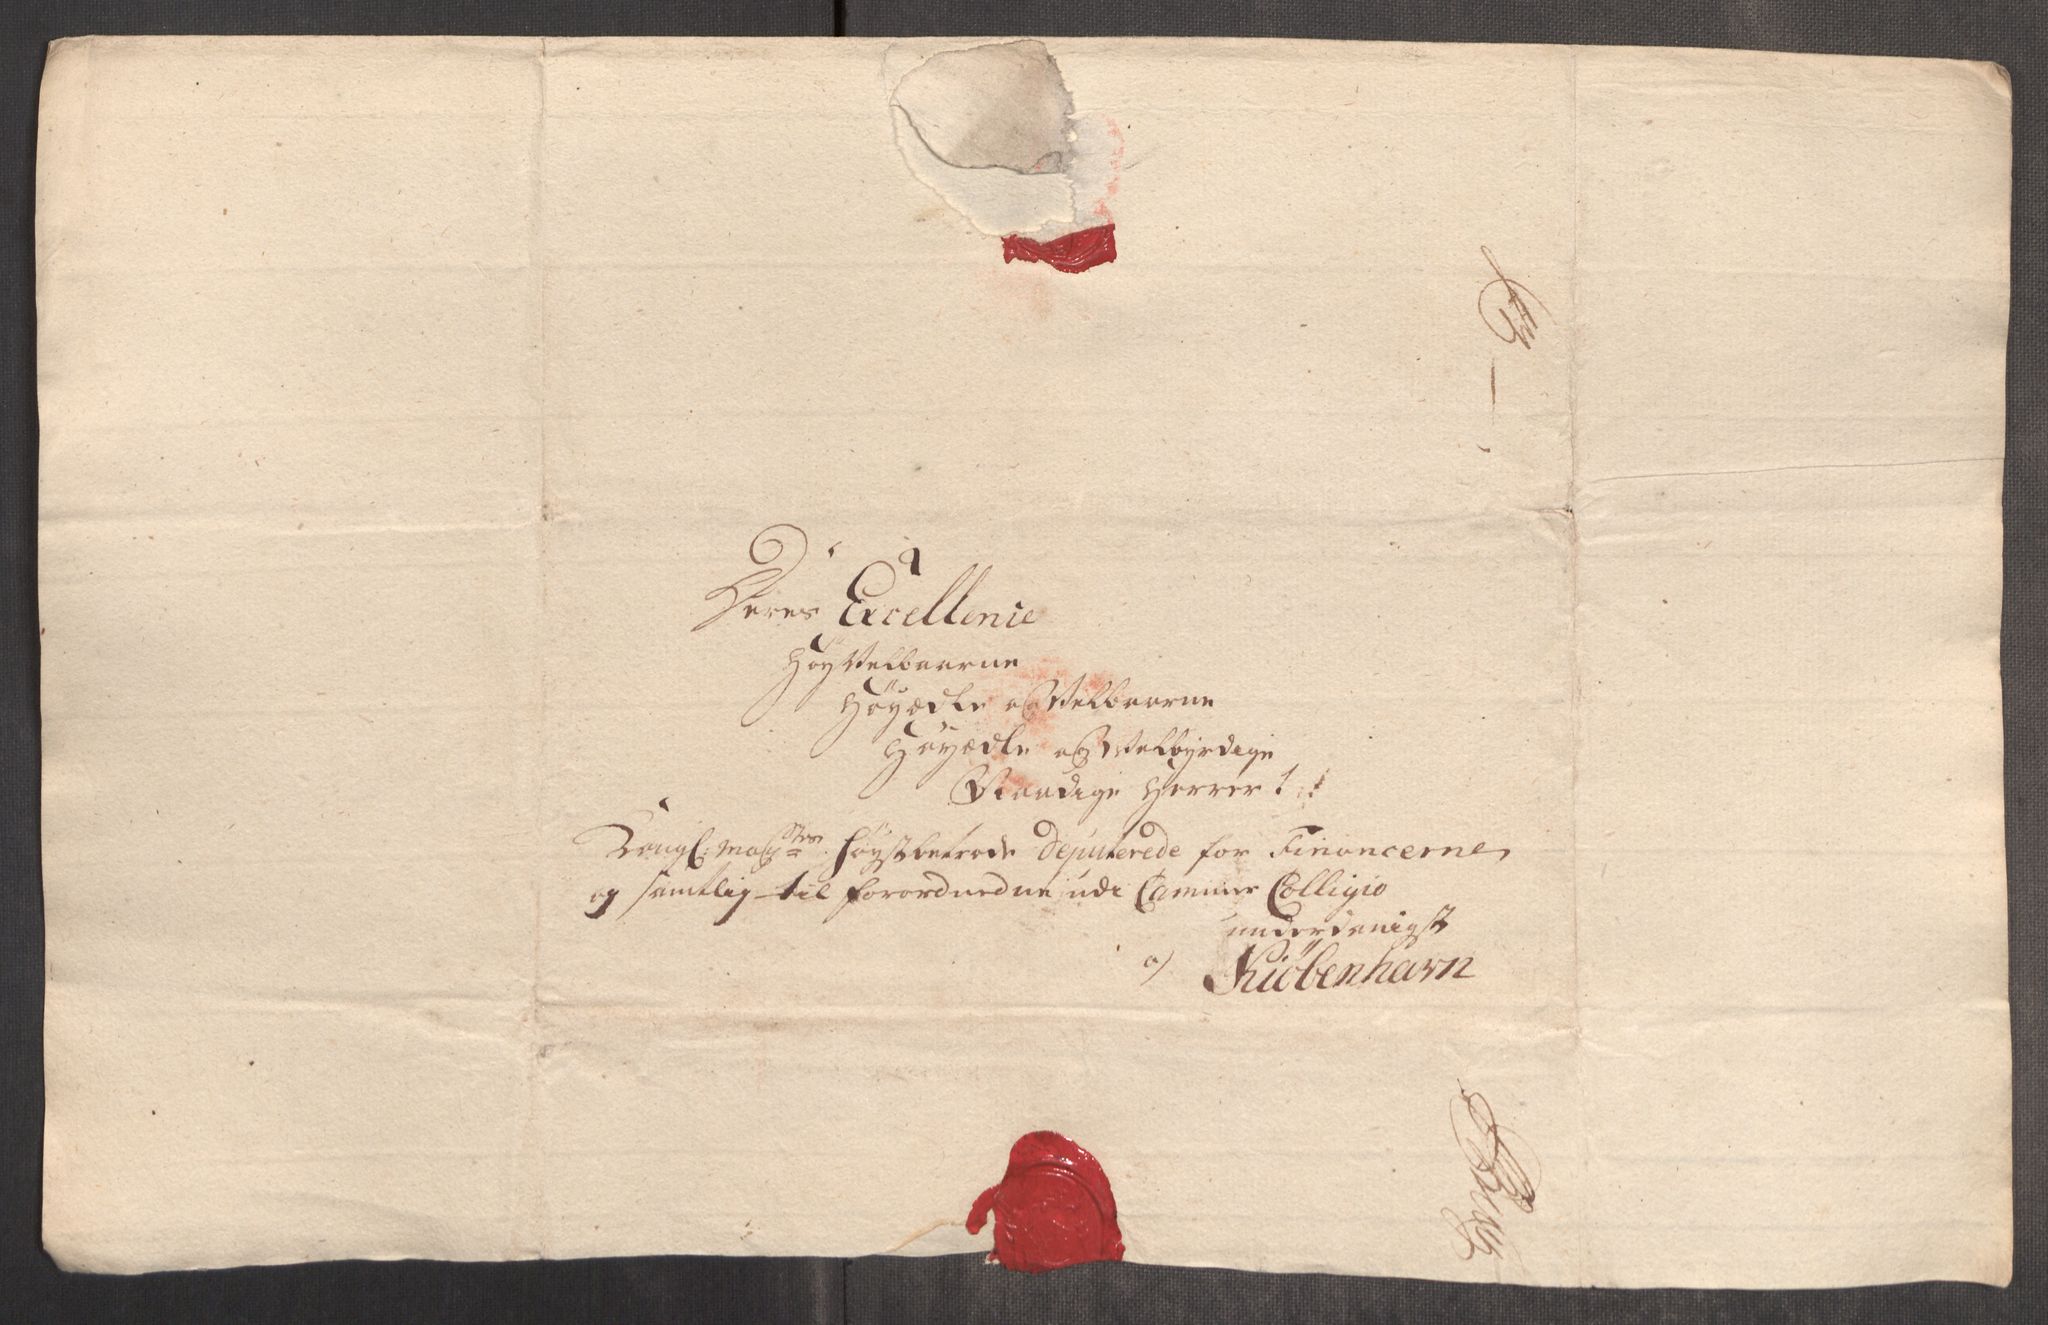 Deres Excellence
HöyVelbaarne
Höyædle og Velbaarne
Höyædle og Velbyrdige
Naadige Herrer!
Kongl: May:sters höystbetrode Deputerede for Financerne,
og samtlig til forordnedne udi Cammer Collegio
underdanigst
a/ Kiöbenhavn